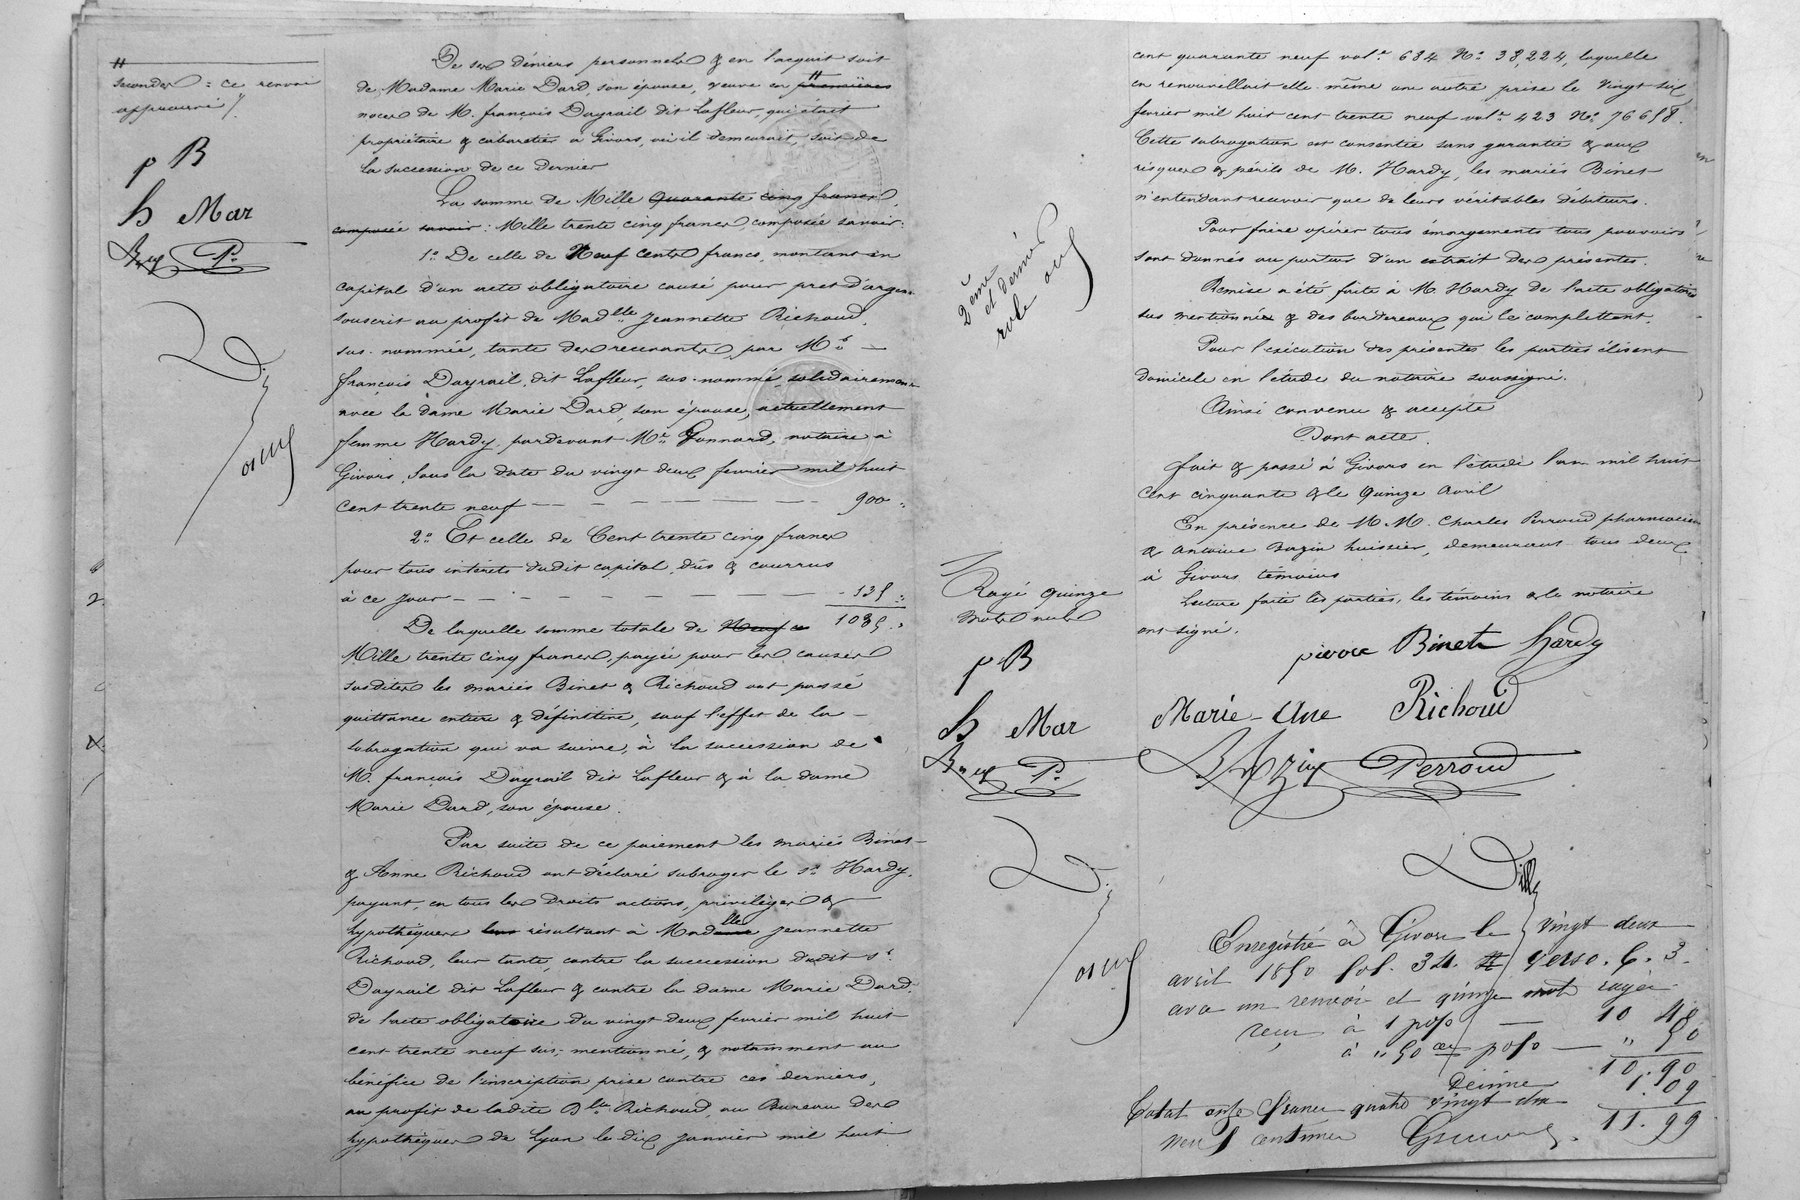 secondes : ce renvoi
approuvé /.
p B
h Mar
P.
De ses déniers personnels & en l'acquit soit
de Madame Marie Dard, son épouse, veuve en premières
noces de M. françois Dayrail dit Lafleur, qui était
propriétaire & cabaretier à Givors, où il demeurait, soit de
la succession de ce dernier
La somme de Mille Quarante cinq francs,
composée savoir : Mille trente cinq francs, composée savoir :
1.° De celle de Neuf cents francs, montant en
capital d'un acte obligatoire causé pour pret d'argent
souscrit au profit de Mad.lle Jeannette Richoud,
sus-nommée, tante des recevants, par M.r —
françois Dayrail, dit Lafleur, sus-nommé, solidairement
avec la dame Marie Dard, son épouse, actuellement
femme Hardy, pardevant M.e Gonnard, notaire à
Givors, sous la date du vingt deux fevrier mil huit
cent trente neuf — — — — — — — 900 "
2.° Et celle de Cent trente cinq francs
pour tous interets dudit capital, dûs & courrus
à ce jour — — — — — — — — 135 "
1035 "
De laquelle somme totale de Neuf ce
Mille trente cinq francs, payée pour les causes
susdites les mariés Binet & Richoud ont passé
quittance entière & définitive, sauf l'effet de la —
subrogation qui va suivre, à la succession de
M. françois Dayrail dit Lafleur & à la dame
Marie Dard, son épouse.
Par suite de ce paiement les mariés Binet
& Anne Richoud ont déclaré subroger le s.r Hardy,
payant, en tous les droits actions, privilèges & —
hypothèques leur résultant à Madame lle Jeannette
Richoud, leur tante, contre la succession dudit s.r
Dayrail dit Lafleur & contre la dame Marie Dard,
de l'acte obligatoire du vingt deux fevrier mil huit
cent trente neuf sus-mentionné, & notamment au
bénéfice de l'inscription prise contre ces derniers,
au profit de ladite D.lle Richoud, au Bureau des
hypothèques de Lyon le dix janvier mil huit
2ème
et dernier
role
Rayé quinze
mots nuls
p B
h Mar
P.
cent quarante neuf vol.e 684 N.o 38,224, laquelle
en renouvellait elle-même une autre prise le vingt six
fevrier mil huit cent trente neuf vol.e 423 N.o 76658.
Cette subrogation est consentie sans garantie & aux
risques & périls de M. Hardy, les mariés Binet
n'entendant recevoir que de leurs véritables débiteurs.
Pour faire opérer tous émargements tous pouvoirs
sont donnés au porteur d'un extrait des présentes.
Remise a été faite à M. Hardy de l'acte obligatoire
sus mentionné & des bordereaux qui le complettent.
Pour l'exécution des présentes les parties élisent
domicile en l'étude du notaire soussigné.
Ainsi convenu & accepté
Dont acte.
fait & passé à Givors en l'étude l'an mil huit
cent cinquante & le quinze avril
En présence de M.M. Charles Perroud pharmacien
& antoine Bazin huissier, demeurant tous deux
à Givors témoins
Lecture faite les parties, les témoins & le notaire
ont signé.
pierre Binet hardy
Marie-Ane Richoud
Bazin Perroud
Enregistré à Givors le vingt deux
avril 1850 fol. 34. verso. C. 3.
avec un renvoi et quinze mots rayés
reçu à 1 p o/o — 10 40
à " 50 ces p o/o — " 50
10.90
Décime 1.09
Total onze francs quatre vingt dix 11.99
neuf centimes